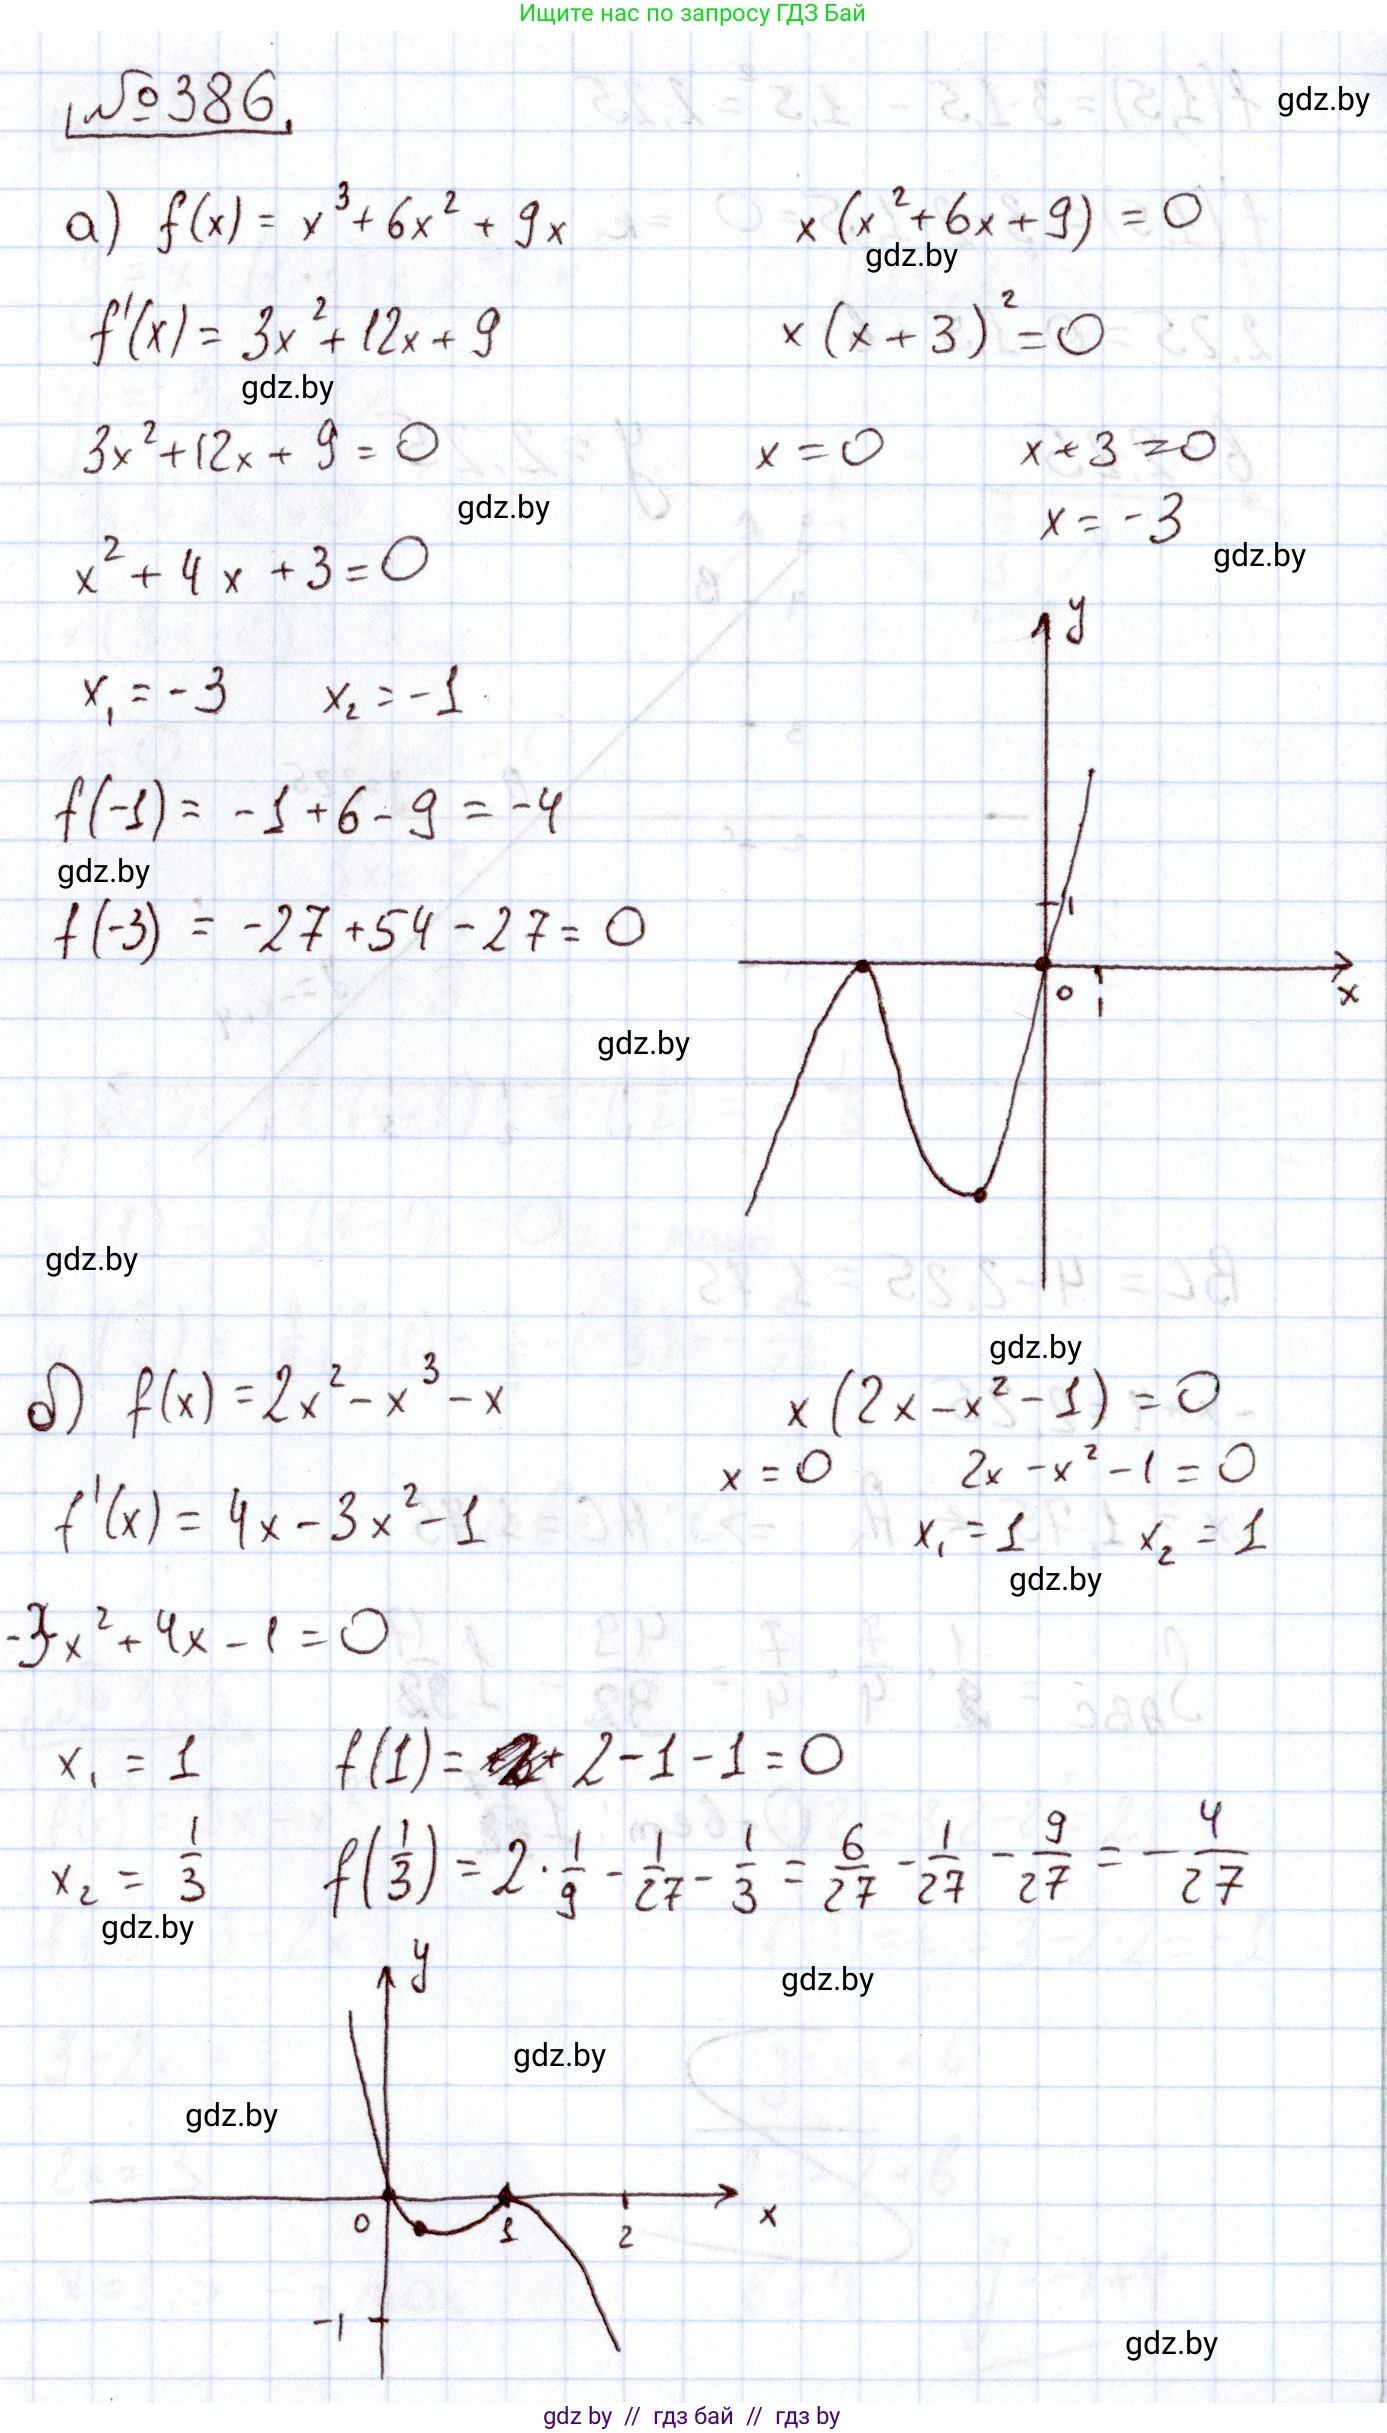 Ищите нас по запросу ГДЗ Бай
№386.
gdz.by
а) f(x) = x³ + 6x² + 9x
x(x² + 6x + 9) = 0
gdz.by
f'(x) = 3x² + 12x + 9
x(x + 3)² = 0
gdz.by
3x² + 12x + 9 = 0
x = 0 x + 3 = 0
gdz.by
x = -3
gdz.by
x² + 4x + 3 = 0
x₁ = -3 x₂ = -1
f(-1) = -1 + 6 - 9 = -4
gdz.by
f(-3) = -27 + 54 - 27 = 0
gdz.by
y
1
0
1
x
gdz.by
gdz.by
б) f(x) = 2x² - x³ - x
x(2x - x² - 1) = 0
x = 0 2x - x² - 1 = 0
f'(x) = 4x - 3x² - 1
x₁ = 1 x₂ = 1
gdz.by
-3x² + 4x - 1 = 0
x₁ = 1 f(1) = 2 - 1 - 1 = 0
x₂ = 1/3 f(1/3) = 2 · 1/9 - 1/27 - 1/3 = 6/27 - 1/27 - 9/27 = - 4/27
gdz.by
y
gdz.by
gdz.by
gdz.by
0 1 2 x
-1
gdz.by
gdz by // гдз бай // гдз by